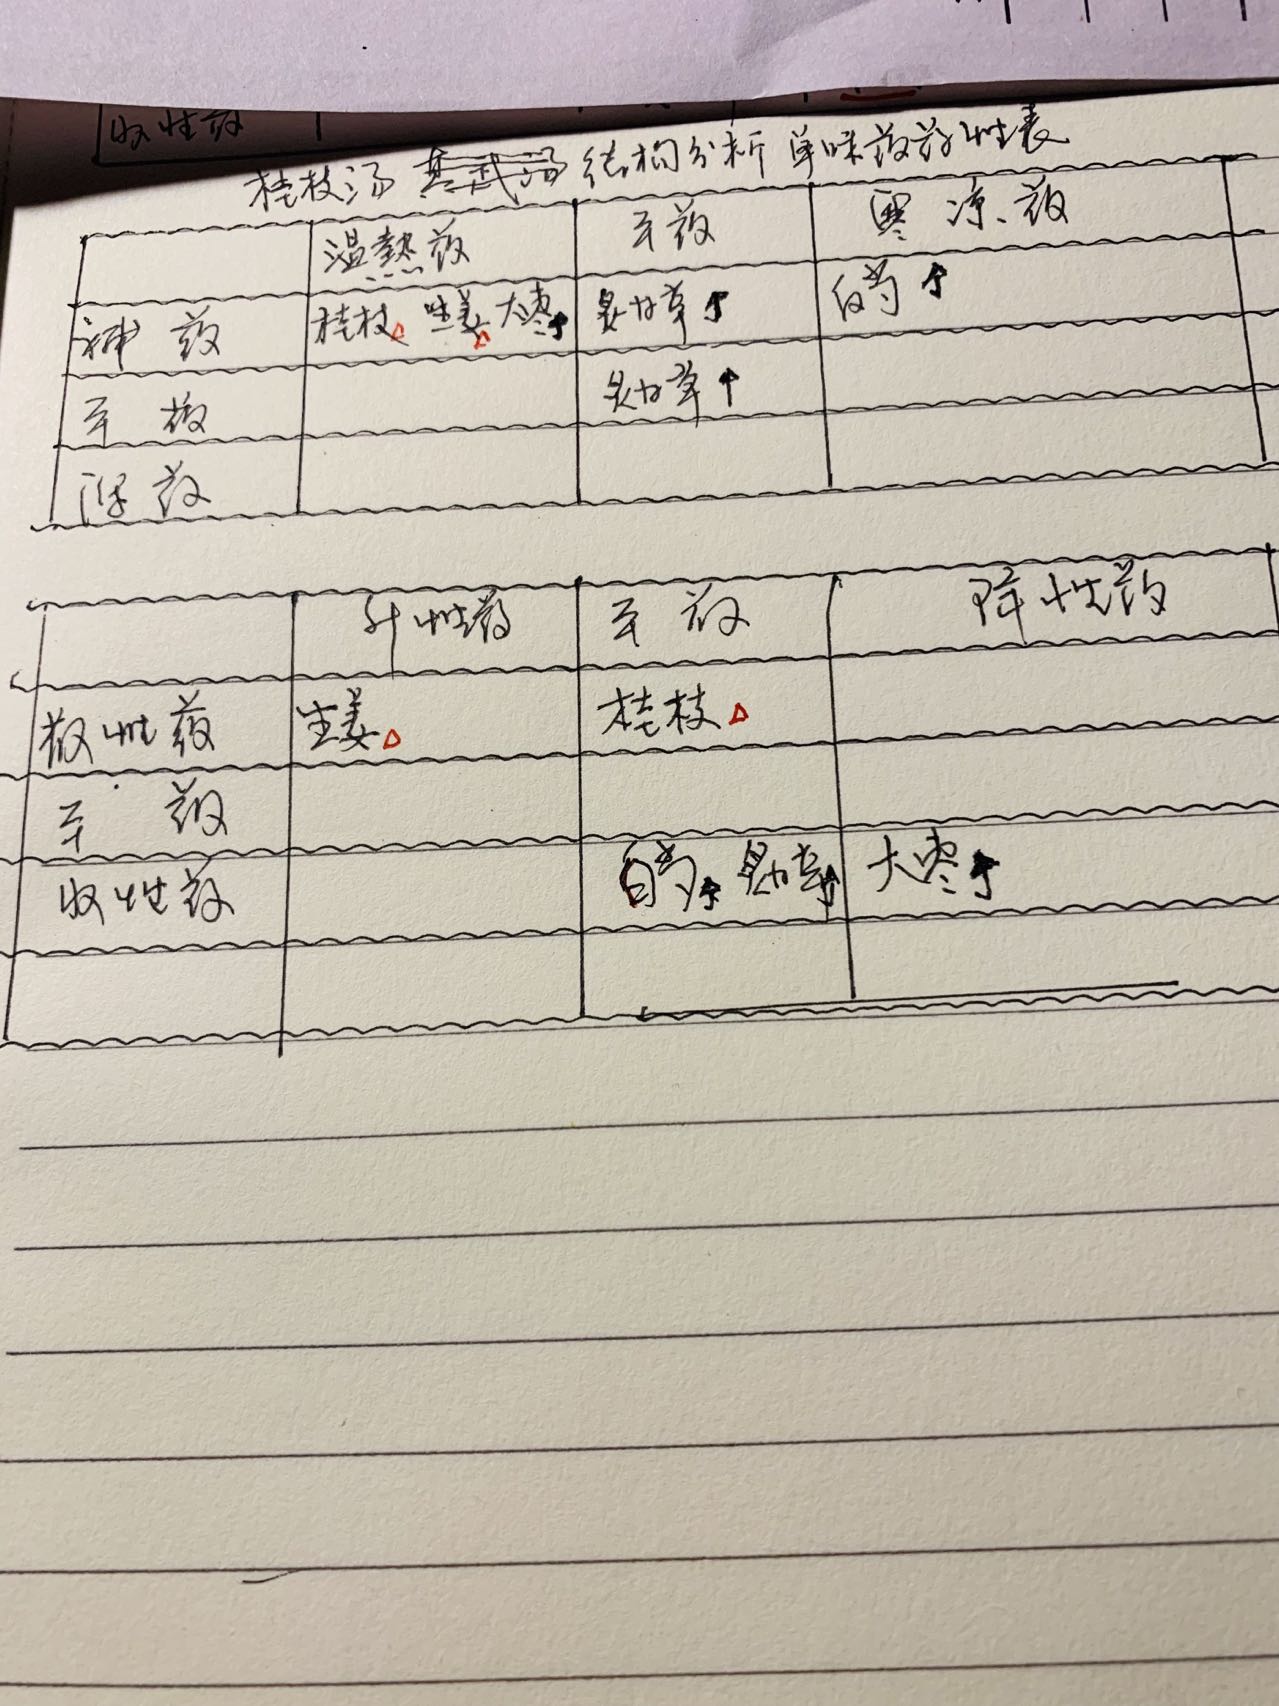 收性药
桂枝汤 真武汤 结构分析 单味药药性表
温熱药 平药 寒凉药
补药 桂枝△ 生姜△ 大枣↑ 炙甘草↑ 白芍↑
平药 炙甘草↑
泻药
升性药 平药 降性药
散性药 生姜△ 桂枝△
平药
收性药 白芍↑ 炙甘草↑ 大枣↑